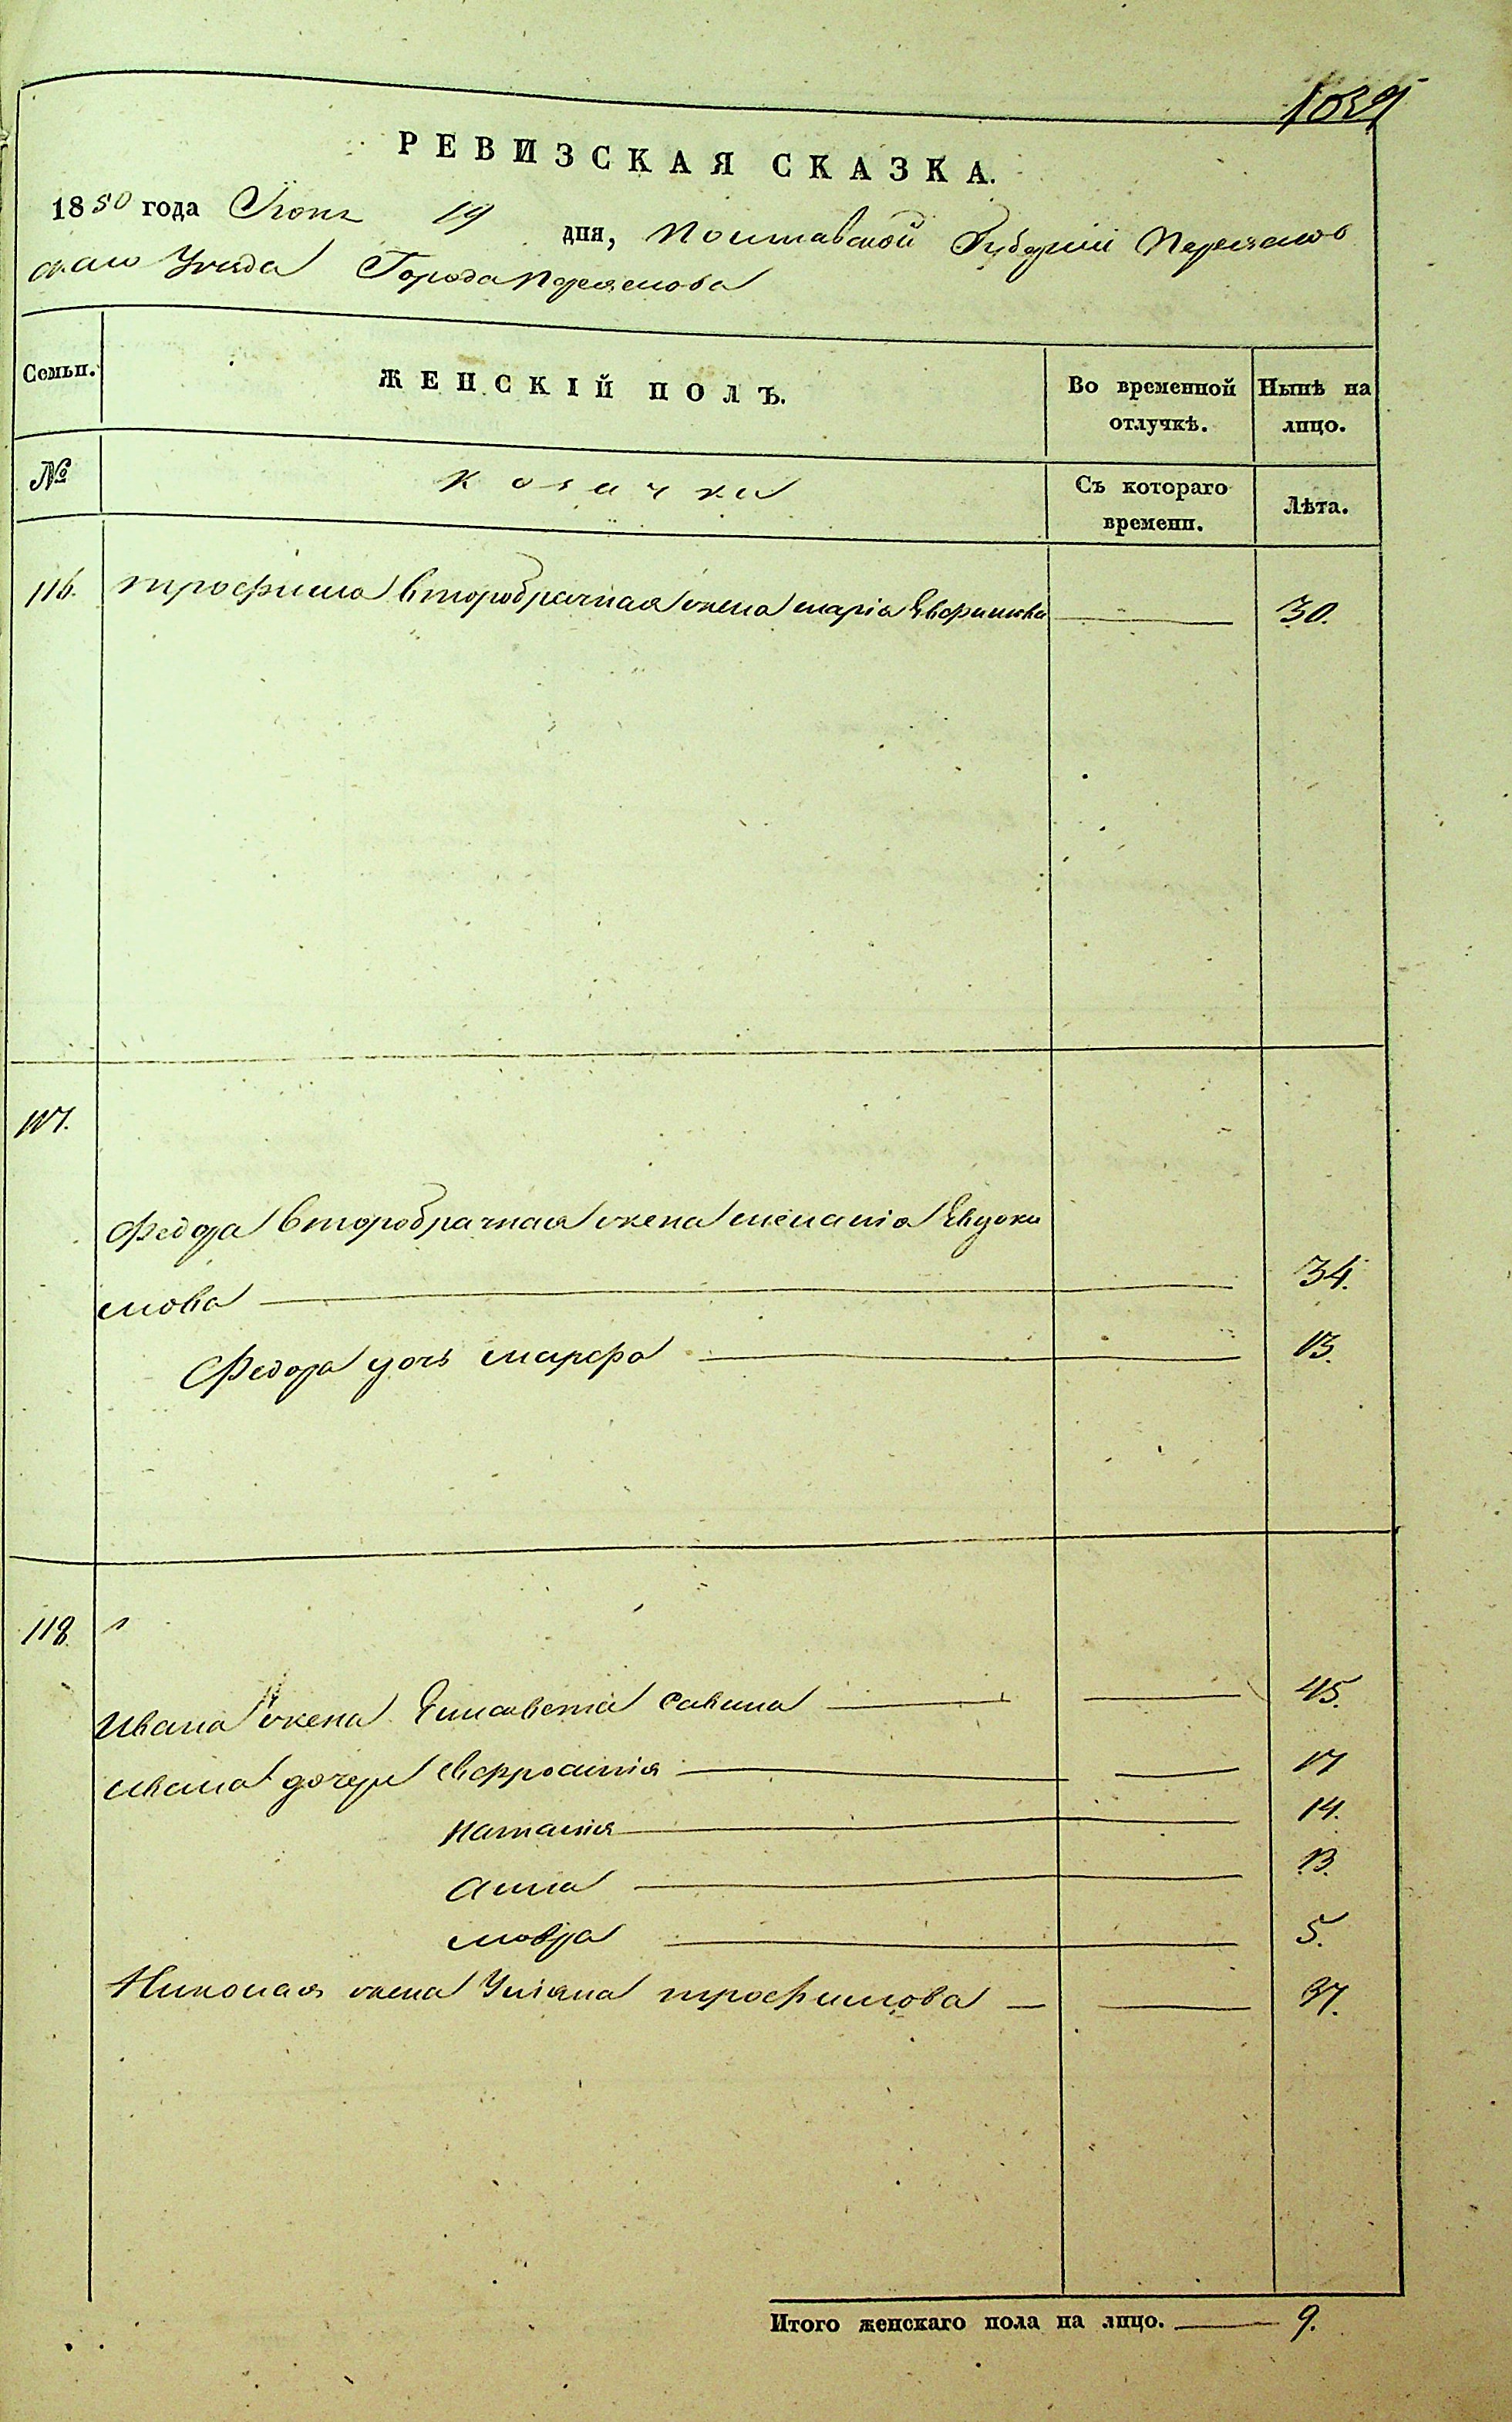 1039
РЕВИЗСКАЯ СКАЗКА.
1850 года Іюня 19 дня, Полтавской Губерніи Переяслов
скаго Уезда Города Переяслова
Семьи. ЖЕНСКІЙ ПОЛЪ. Во временной отлучкѣ. Нынѣ на лицо.
№ Козачки Съ котораго времени. Лѣта.
116. трофима второбрачная жена марія Ефимова 30.
117.
Федора второбрачная жена меланія Евдоки
мова 34.
Федора дочь марфа 13.
118.
Ивана жена Елисавета Савина 45.
Ивана дочери Евфросинія 17
Наталія 14.
Анна 13.
мавра 5.
Николая жена Уліяна трофимова 37.
Итого женскаго пола на лицо. 9.